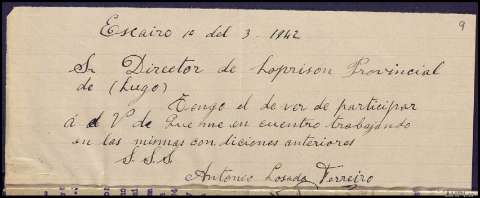 9
Escairo 1º del 3. 1942
Sr Director de Laprison Provincial
de (Lugo)
Tengo el de ver de participar
á d V de Que me en cuentro trabajando
en las mismas con diciones anteriores
S.S.S
Antonio Losada Ferreiro